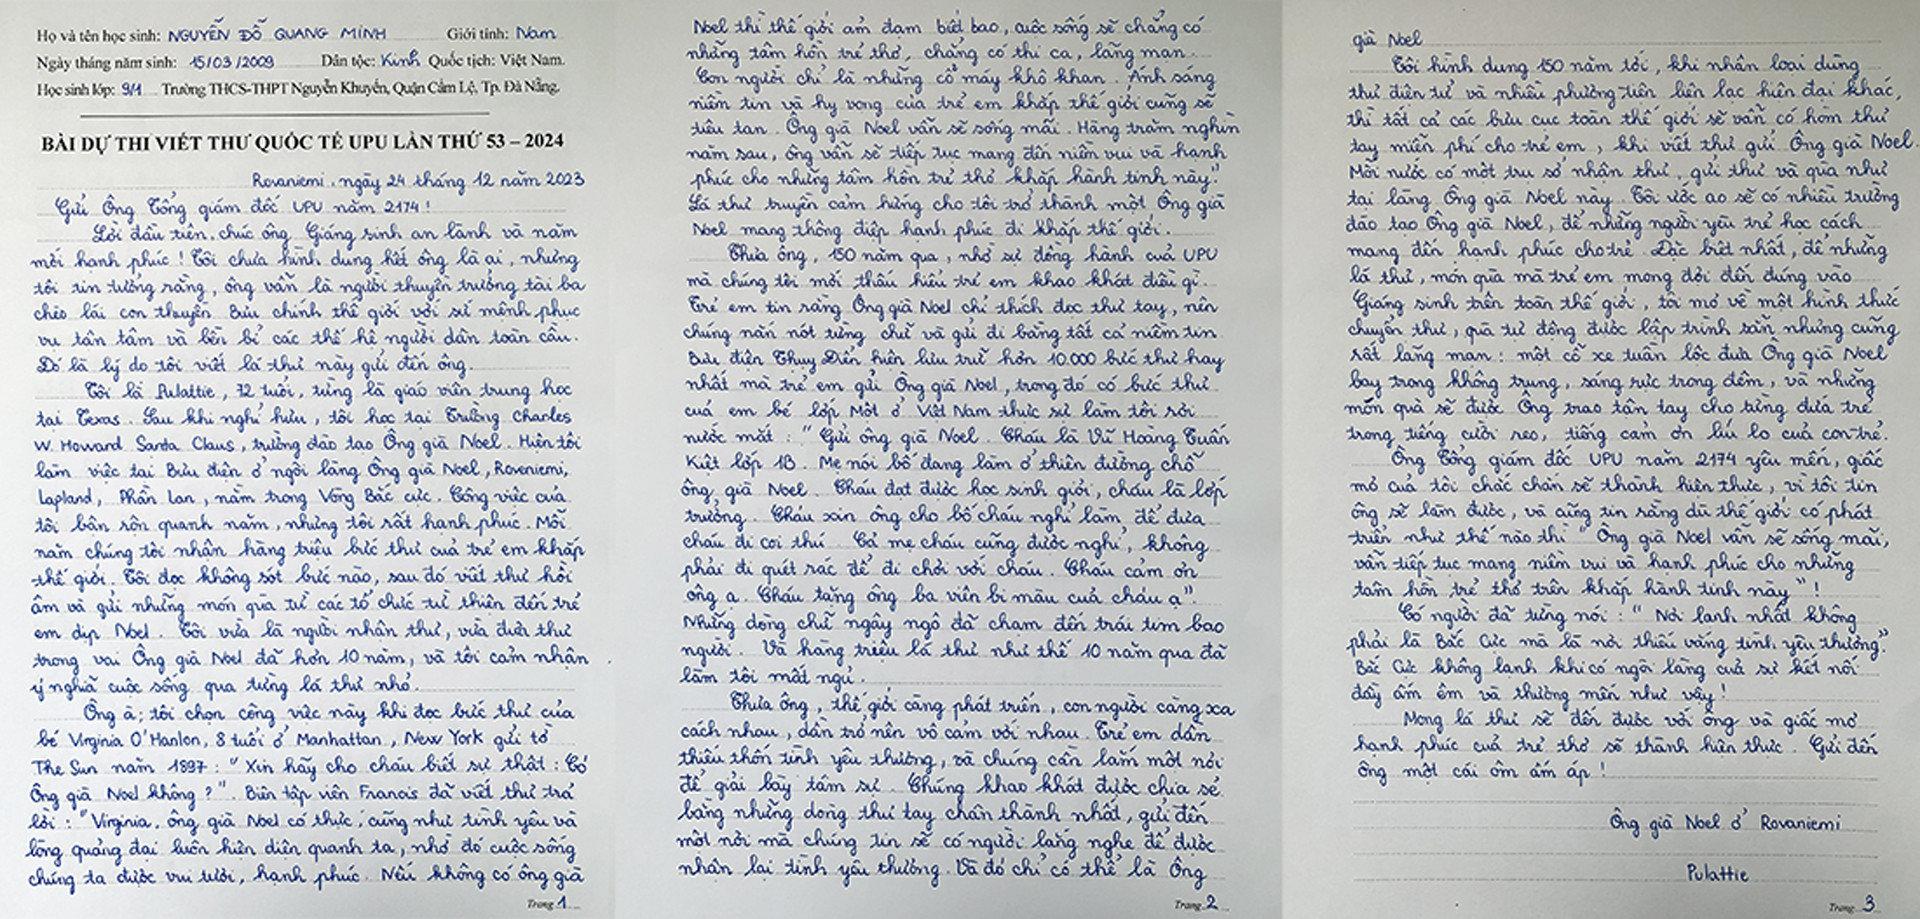 Họ và tên học sinh: NGUYỄN ĐỖ QUANG MINH Giới tính: Nam
Ngày tháng năm sinh: 15/03/2009 Dân tộc: Kinh Quốc tịch: Việt Nam.
Học sinh lớp: 9/1 Trường THCS-THPT Nguyễn Khuyến, Quận Cẩm Lệ, Tp. Đà Nẵng.
BÀI DỰ THI VIẾT THƯ QUỐC TẾ UPU LẦN THỨ 53 – 2024
Rovaniemi, ngày 24 tháng 12 năm 2023
Gửi Ông Tổng giám đốc UPU năm 2174!
Lời đầu tiên, chúc ông Giáng sinh an lành và năm
mới hạnh phúc! Tôi chưa hình dung hết ông là ai, nhưng
tôi tin tưởng rằng, ông vẫn là người thuyền trưởng tài ba
chèo lái con thuyền Bưu chính thế giới với sứ mệnh phục
vụ tận tâm và bền bỉ các thế hệ người dân toàn cầu.
Đó là lý do tôi viết lá thư này gửi đến ông.
Tôi là Pulattie, 72 tuổi, từng là giáo viên trung học
tại Texas. Sau khi nghỉ hưu, tôi học tại Trường Charles
W. Howard Santa Claus, trường đào tạo Ông già Noel. Hiện tôi
làm việc tại Bưu điện ở ngôi làng Ông già Noel, Rovaniemi,
Lapland, Phần Lan, nằm trong Vòng Bắc cực. Công việc của
tôi bận rộn quanh năm, nhưng tôi rất hạnh phúc. Mỗi
năm chúng tôi nhận hàng triệu bức thư của trẻ em khắp
thế giới. Tôi đọc không sót bức nào, sau đó viết thư hồi
âm và gửi những món quà từ các tổ chức từ thiện đến trẻ
em dịp Noel. Tôi vừa là người nhận thư, vừa đưa thư
trong vai Ông già Noel đã hơn 10 năm, và tôi cảm nhận
ý nghĩa cuộc sống qua từng lá thư nhỏ.
Ông à; tôi chọn công việc này khi đọc bức thư của
bé Virginia O'Hanlon, 8 tuổi ở Manhattan, New York gửi tờ
The Sun năm 1897: "Xin hãy cho cháu biết sự thật: Có
Ông già Noel không?". Biên tập viên Francis đã viết thư trả
lời: "Virginia, ông già Noel có thực, cũng như tình yêu và
lòng quảng đại luôn hiện diện quanh ta, nhờ đó cuộc sống
chúng ta được vui tươi, hạnh phúc. Nếu không có ông già
Trang 1
Noel thì thế giới ảm đạm biết bao, cuộc sống sẽ chẳng có
những tâm hồn trẻ thơ, chẳng có thi ca, lãng mạn.
Con người chỉ là những cỗ máy khô khan. Ánh sáng
niềm tin và hy vọng của trẻ em khắp thế giới cũng sẽ
tiêu tan. Ông già Noel vẫn sẽ sống mãi. Hàng trăm nghìn
năm sau, ông vẫn sẽ tiếp tục mang đến niềm vui và hạnh
phúc cho những tâm hồn trẻ thơ khắp hành tinh này."
Lá thư truyền cảm hứng cho tôi trở thành một Ông già
Noel mang thông điệp hạnh phúc đi khắp thế giới.
Thưa ông, 150 năm qua, nhờ sự đồng hành của UPU
mà chúng tôi mới thấu hiểu trẻ em khao khát điều gì.
Trẻ em tin rằng Ông già Noel chỉ thích đọc thư tay, nên
chúng nắn nót từng chữ và gửi đi bằng tất cả niềm tin.
Bưu điện Thụy Điển hiện lưu trữ hơn 10.000 bức thư hay
nhất mà trẻ em gửi Ông già Noel, trong đó có bức thư
của em bé lớp Một ở Việt Nam thực sự làm tôi rơi
nước mắt: "Gửi ông già Noel. Cháu là Vũ Hoàng Tuấn
Kiệt lớp 1B. Mẹ nói bố đang làm ở thiên đường chỗ
ông già Noel. Cháu đạt được học sinh giỏi, cháu là lớp
trưởng. Cháu xin ông cho bố cháu nghỉ làm, để đưa
cháu đi coi thú. Cả mẹ cháu cũng được nghỉ, không
phải đi quét rác để đi chơi với cháu. Cháu cảm ơn
ông ạ. Cháu tặng ông ba viên bi màu của cháu ạ".
Những dòng chữ ngây ngô đã chạm đến trái tim bao
người. Và hàng triệu lá thư như thế 10 năm qua đã
làm tôi mất ngủ.
Thưa ông, thế giới càng phát triển, con người càng xa
cách nhau, dần trở nên vô cảm với nhau. Trẻ em dần
thiếu thốn tình yêu thương, và chúng cần lắm một nơi
để giải bày tâm sự. Chúng khao khát được chia sẻ
bằng những dòng thư tay chân thành nhất, gửi đến
một nơi mà chúng tin sẽ có người lắng nghe để được
nhận lại tình yêu thương. Và đó chỉ có thể là Ông
Trang 2
già Noel
Tôi hình dung 150 năm tới, khi nhân loại dùng
thư điện tử và nhiều phương tiện liên lạc hiện đại khác,
thì tất cả các bưu cục toàn thế giới sẽ vẫn có hòm thư
tay miễn phí cho trẻ em, khi viết thư gửi Ông già Noel.
Mỗi nước có một trụ sở nhận thư, gửi thư và quà như
tại làng Ông già Noel này. Tôi ước ao sẽ có nhiều trường
đào tạo Ông già Noel, để những người yêu trẻ học cách
mang đến hạnh phúc cho trẻ. Đặc biệt nhất, để những
lá thư, món quà mà trẻ em mong đợi đến đúng vào
Giáng sinh trên toàn thế giới, tôi mơ về một hình thức
chuyển thư, quà tự động được lập trình sẵn nhưng cũng
rất lãng mạn: một cỗ xe tuần lộc đưa Ông già Noel
bay trong không trung, sáng rực trong đêm, và những
món quà sẽ được Ông trao tận tay cho từng đứa trẻ
trong tiếng cười reo, tiếng cảm ơn líu lo của con trẻ.
Ông Tổng giám đốc UPU năm 2174 yêu mến, giấc
mơ của tôi chắc chắn sẽ thành hiện thực, vì tôi tin
ông sẽ làm được, và cũng tin rằng dù thế giới có phát
triển như thế nào thì "Ông già Noel vẫn sẽ sống mãi,
vẫn tiếp tục mang niềm vui và hạnh phúc cho những
tâm hồn trẻ thơ trên khắp hành tinh này"!
Có người đã từng nói: "Nơi lạnh nhất không
phải là Bắc Cực mà là nơi thiếu vắng tình yêu thương."
Bắc Cực không lạnh khi có ngôi làng của sự kết nối
đầy ấm êm và thương mến như vậy!
Mong lá thư sẽ đến được với ông và giấc mơ
hạnh phúc của trẻ thơ sẽ thành hiện thực. Gửi đến
ông một cái ôm ấm áp!
Ông già Noel ở Rovaniemi
Pulattie
Trang 3